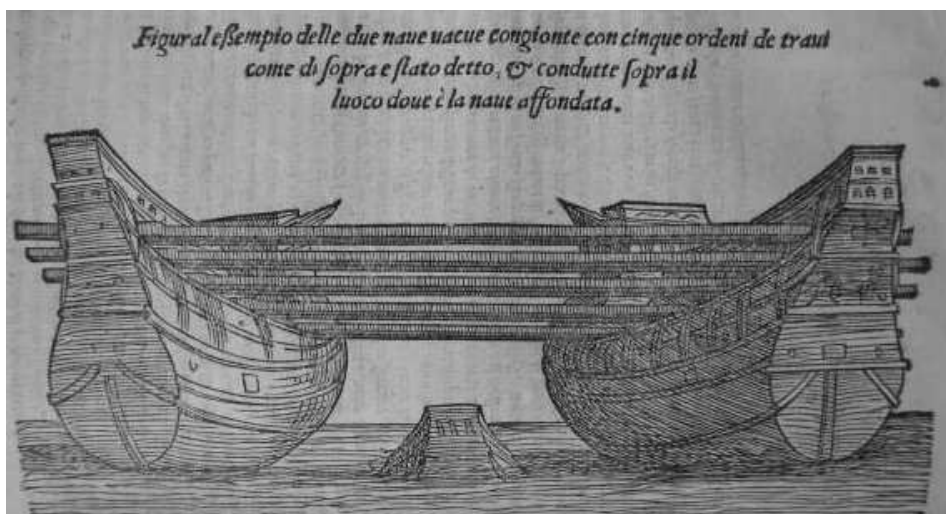 Figural eſſempio delle due naue uacue congionte con cinque ordeni de traui
come di ſopra e ſtato detto, & condutte ſopra il
luoco doue è la naue affondata.